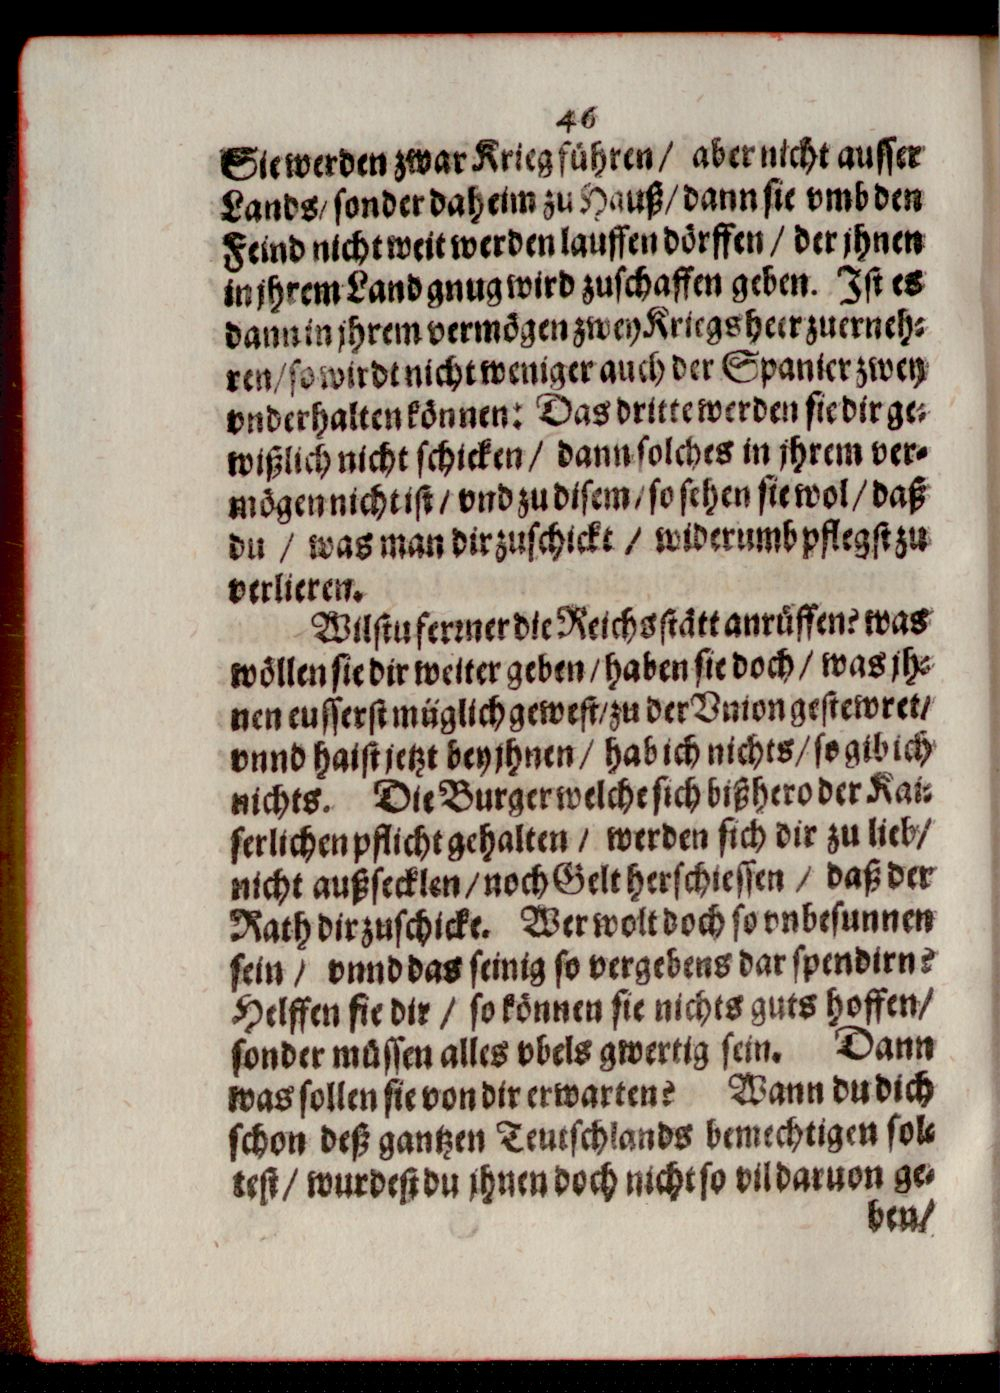 46
Sie werden zwar Krieg führen / aber nicht ausser
Lands / sonder daheim zu Hauß / dann sie vmb den
Feind nicht weit werden lauffen dörffen / der jhnen
in jhrem Land gnug wird zuschaffen geben. Ist es
dann in jhrem vermögen zwey Kriegsheer zuerneh-
ren / so wirdt nicht weniger auch der Spanier zwey
vnderhalten können: Das dritte werden sie dir ge-
wißlich nicht schicken / dann solches in jhrem ver-
mögen nicht ist / vnd zu disem / so sehen sie wol / daß
du / was man dir zuschickt / widerumb pflegst zu
verlieren.
Wilstu ferrner die Reichsstätt anrüffen? was
wöllen sie dir weiter geben / haben sie doch / was jh-
nen eusserst müglich gewest / zu der Vnion gestewret /
vnnd haist jetzt bey jhnen / hab ich nichts / so gib ich
nichts. Die Burger welche sich bißhero der Kai-
serlichen pflicht gehalten / werden sich dir zu lieb /
nicht außsecklen / noch Gelt herschiessen / daß der
Rath dir zuschicke. Wer wolt doch so vnbesunnen
sein / vnnd das seinig so vergebens dar spendirn?
Helffen sie dir / so können sie nichts guts hoffen /
sonder müssen alles vbels gwertig sein. Dann
was sollen sie von dir erwarten? Wann du dich
schon deß gantzen Teutschlands bemechtigen sol-
test / wurdest du jhnen doch nicht so vil daruon ge-
ben /